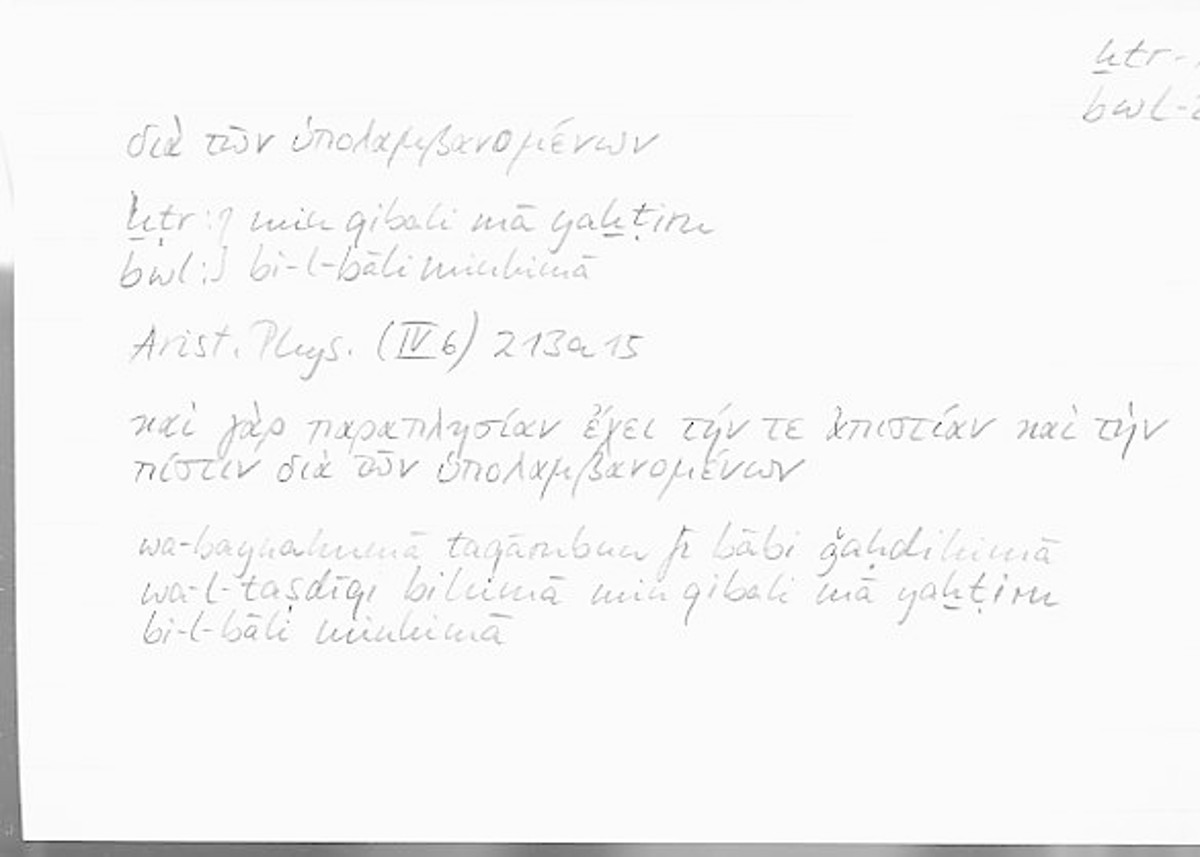 ḫṭr-
bwl-
διὰ τῶν ὑπολαμβανομένων
ḫṭr :} min qibali mā yaḫṭiru
bwl :} bi-l-bāli minhimā
Arist. Phys. (IV 6) 213a15
καὶ γὰρ παραπλησίαν ἔχει τήν τε ἀπιστίαν καὶ τὴν
πίστιν διὰ τῶν ὑπολαμβανομένων
wa-baynahumā taqārubun fī bābi ǧaḥdihimā
wa-l-taṣdīqi bihimā min qibali mā yaḫṭiru
bi-l-bāli minhimā